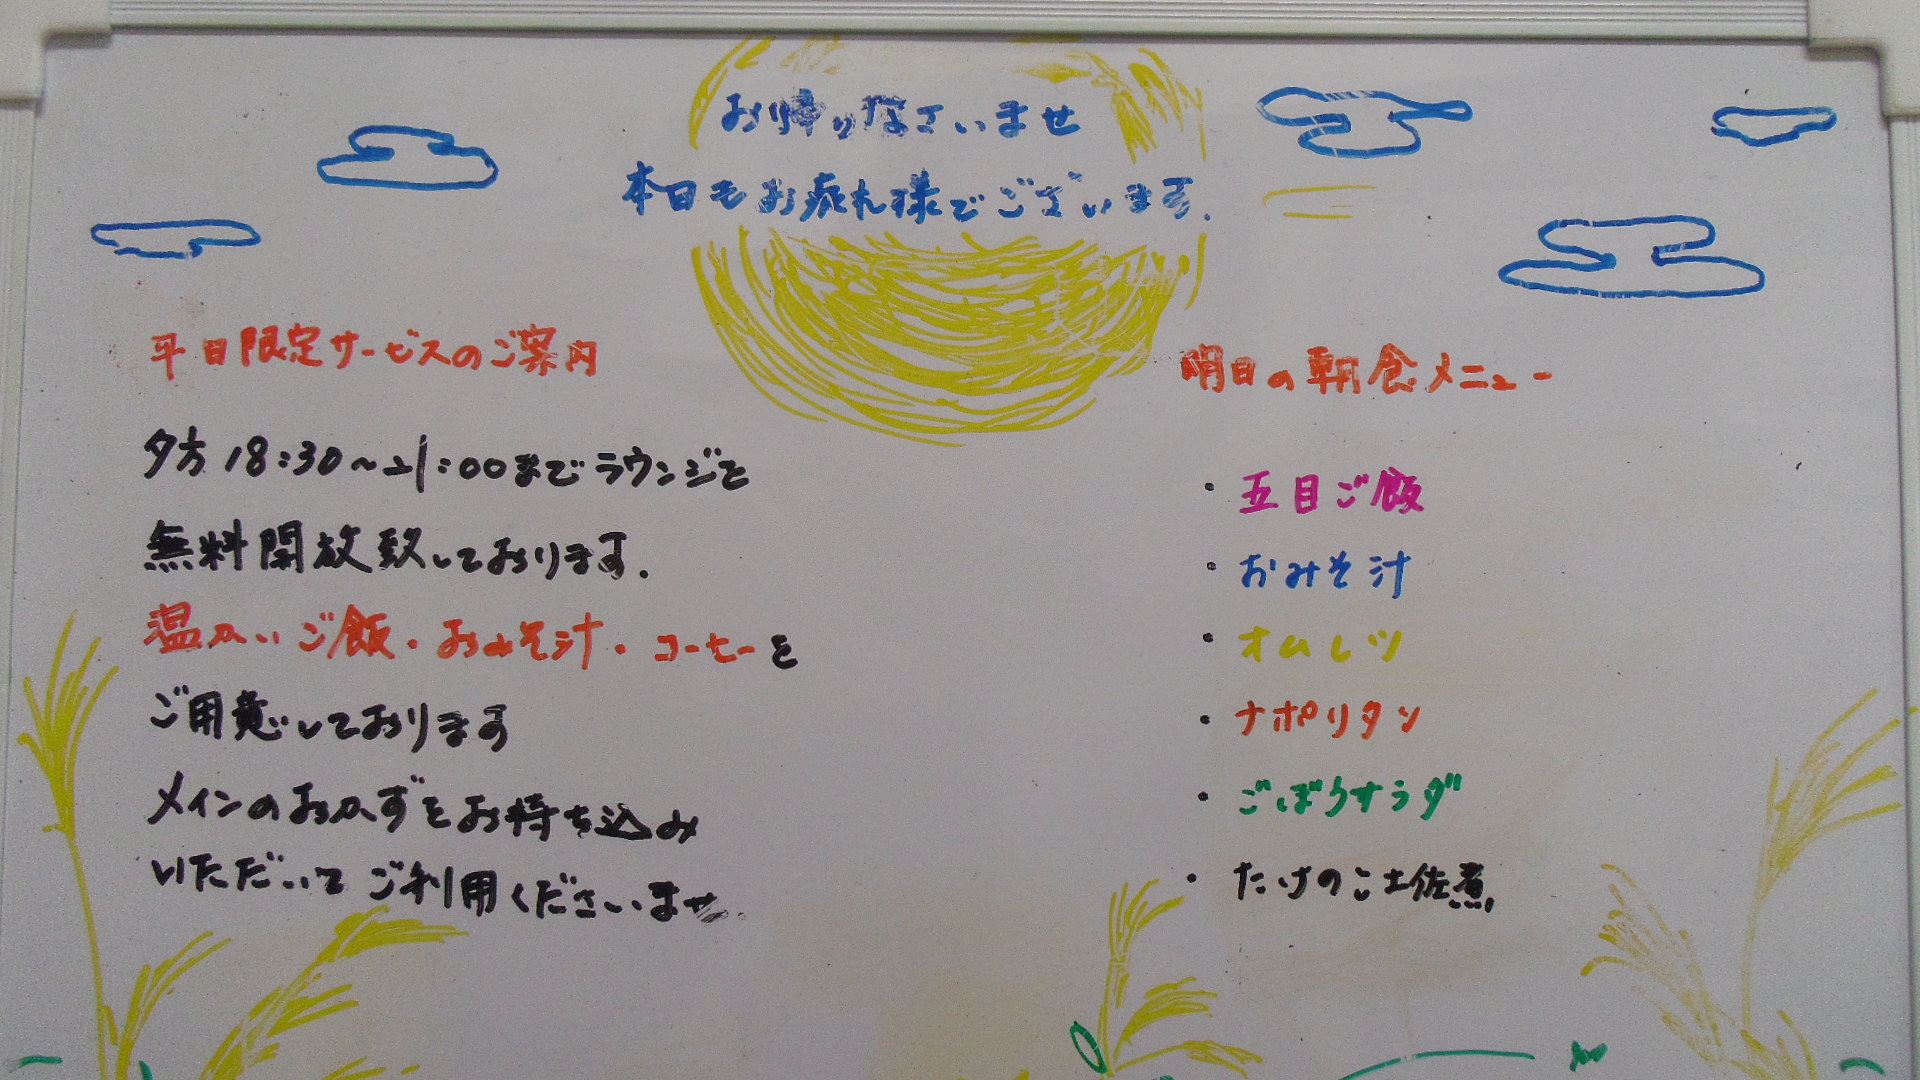 お帰りなさいませ
本日もお疲れ様でございます.
平日限定サービスのご案内
夕方18:30～21:00までラウンジを
無料開放致しております.
温かいご飯・おみそ汁・コーヒーを
ご用意しております
メインのおかずをお持ち込み
いただいてご利用くださいませ.
明日の朝食メニュー
・五目ご飯
・おみそ汁
・オムレツ
・ナポリタン
・ごぼうサラダ
・たけのこ土佐煮